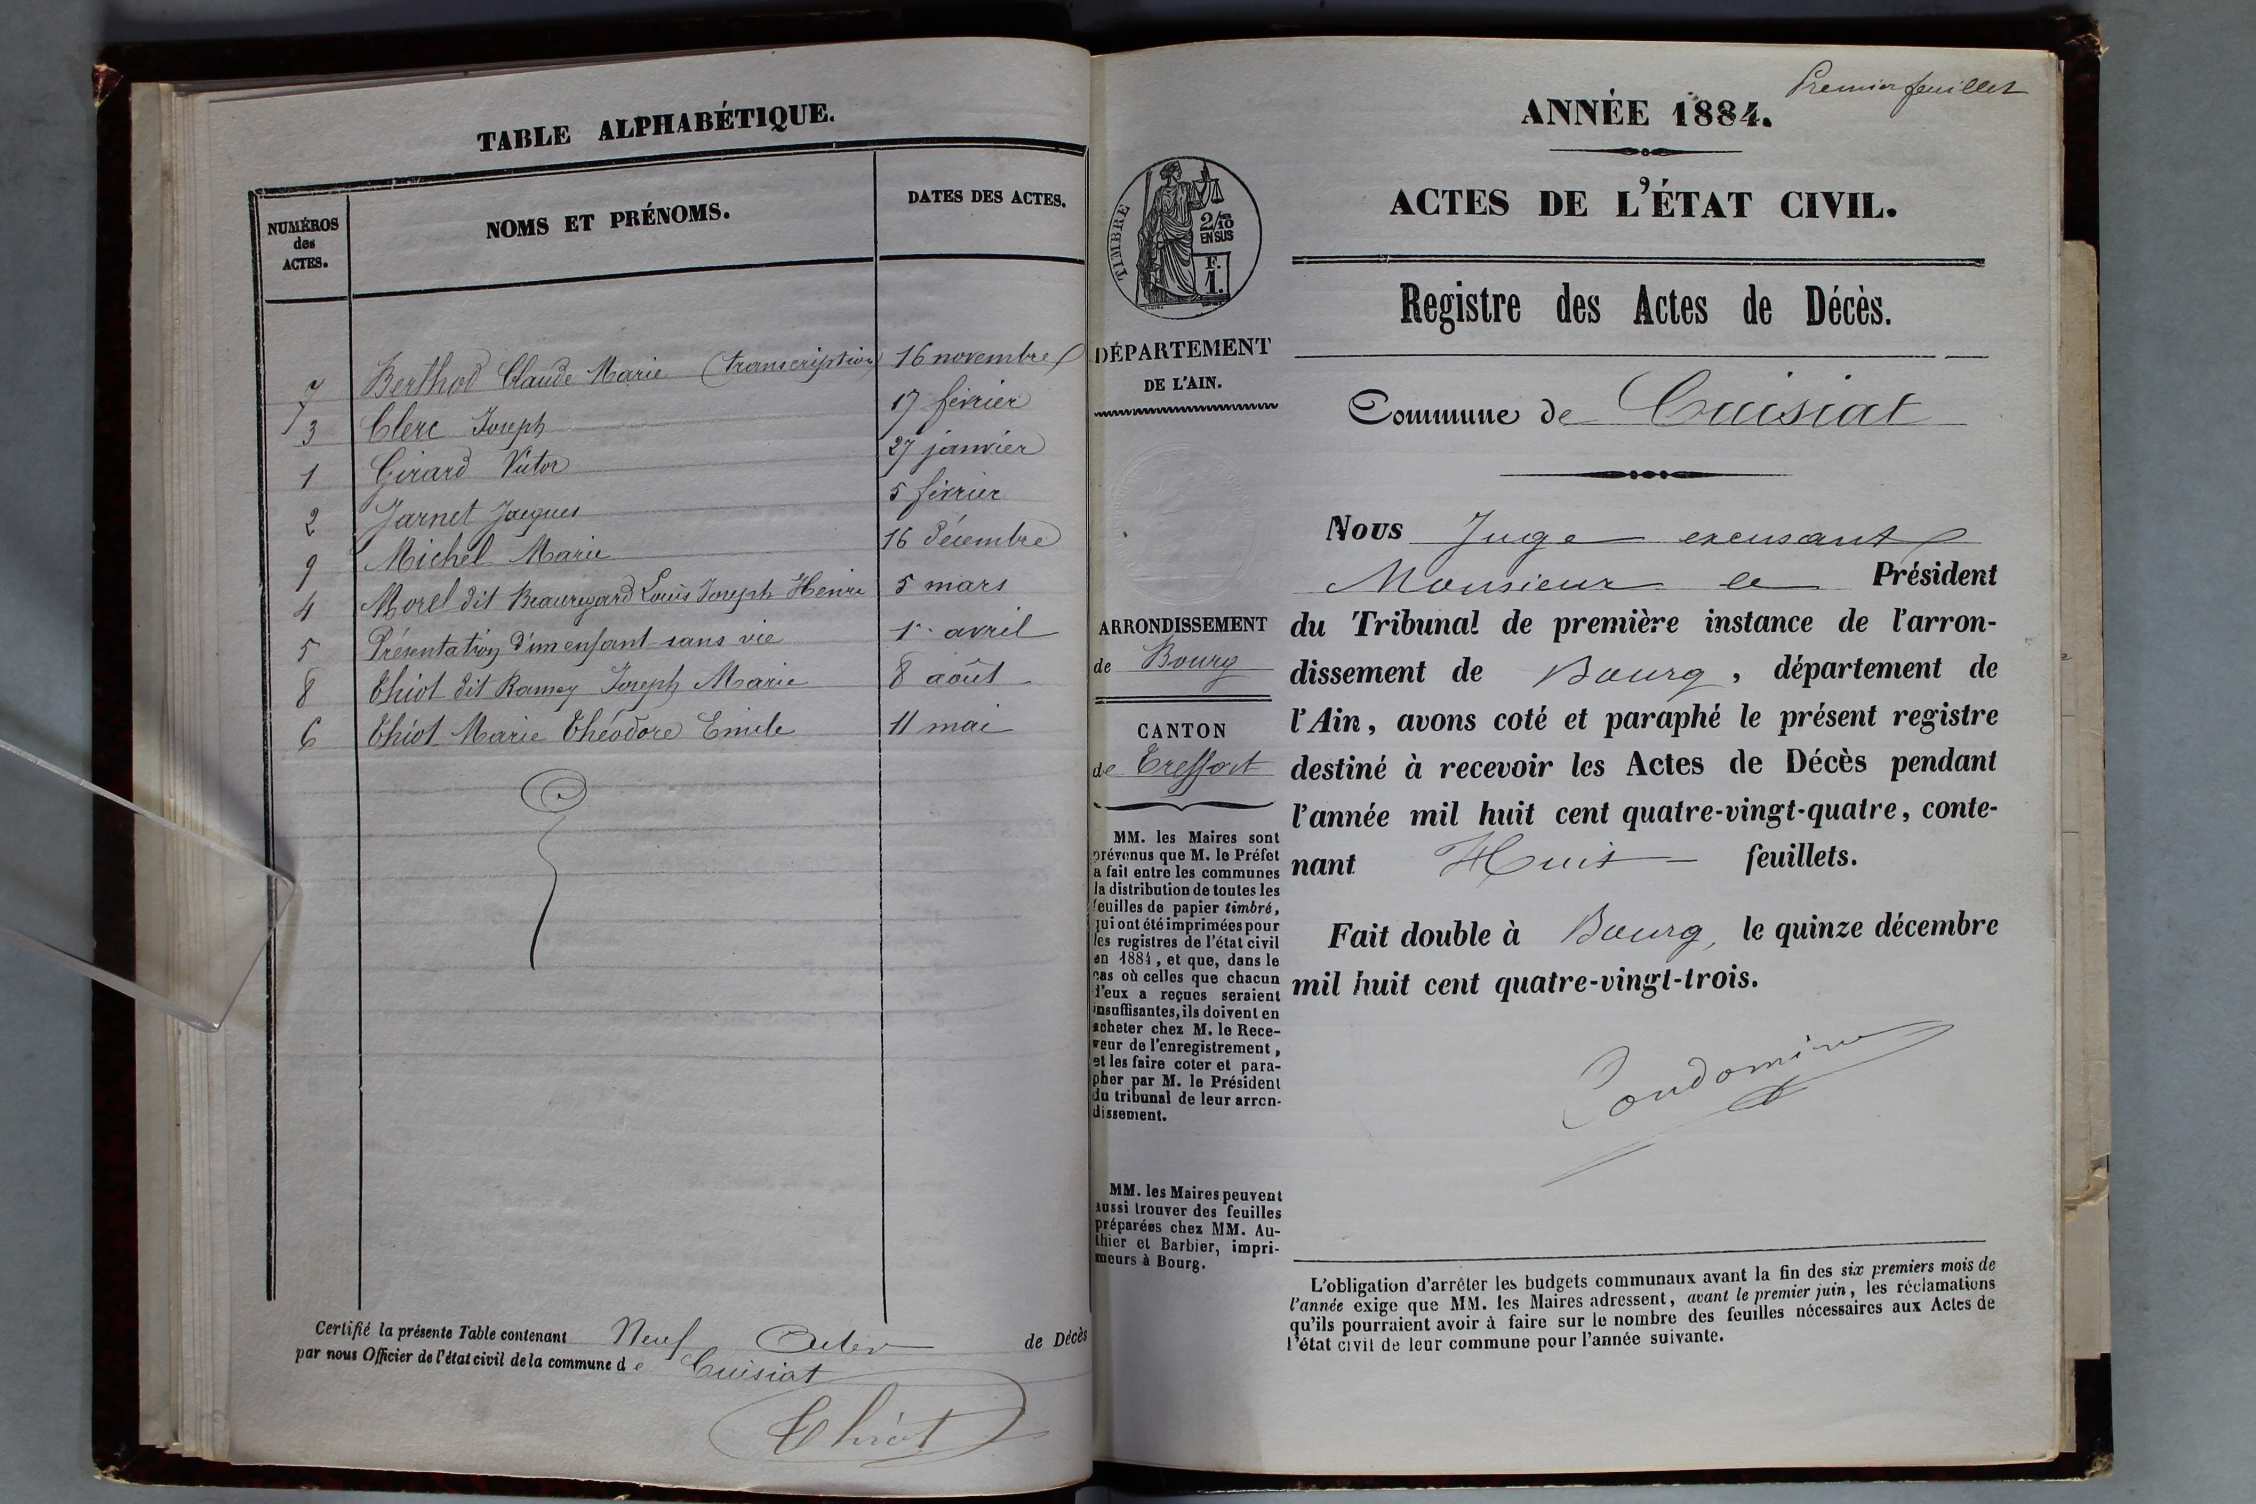 TABLE ALPHABÉTIQUE.
NUMÉROS
des
ACTES.
NOMS ET PRÉNOMS.
DATES DES ACTES.
7 Berthod Claude Marie (transcription) 16 novembre
3 Clerc Joseph 17 février
1 Girard Victor 27 janvier
2 Jarnet Jacques 5 février
9 Michel Marie 16 décembre
4 Morel dit Beauregard Louis Joseph Henri 5 mars
5 Présentation d'un enfant sans vie 1er avril
8 Thiot dit Ramey Joseph Marie 8 août
6 Thiot Marie Théodore Emile 11 mai
Certifié la présente Table contenant Neuf Actes de Décès
par nous Officier de l'état civil de la commune de Cuisiat
Thiot
Premier feuillet
ANNÉE 1884.
ACTES DE L'ÉTAT CIVIL.
Registre des Actes de Décès.
Commune de Cuisiat
TIMBRE
2/10
EN SUS
F.
1.
DÉPARTEMENT
DE L'AIN.
ARRONDISSEMENT
de Bourg
CANTON
de Treffort
MM. les Maires sont
prévenus que M. le Préfet
a fait entre les communes
la distribution de toutes les
feuilles de papier timbré,
qui ont été imprimées pour
les registres de l'état civil
en 1884, et que, dans le
cas où celles que chacun
d'eux a reçues seraient
insuffisantes, ils doivent en
acheter chez M. le Rece-
veur de l'enregistrement,
et les faire coter et para-
pher par M. le Président
du tribunal de leur arron-
dissement.
MM. les Maires peuvent
aussi trouver des feuilles
préparées chez MM. Au-
thier et Barbier, impri-
meurs à Bourg.
Nous Juge excusant
Monsieur le Président
du Tribunal de première instance de l'arron-
dissement de Bourg, département de
l'Ain, avons coté et paraphé le présent registre
destiné à recevoir les Actes de Décès pendant
l'année mil huit cent quatre-vingt-quatre, conte-
nant Huit feuillets.
Fait double à Bourg, le quinze décembre
mil huit cent quatre-vingt-trois.
L'obligation d'arrêter les budgets communaux avant la fin des six premiers mois de
l'année exige que MM. les Maires adressent, avant le premier juin, les réclamations
qu'ils pourraient avoir à faire sur le nombre des feuilles nécessaires aux Actes de
l'état civil de leur commune pour l'année suivante.